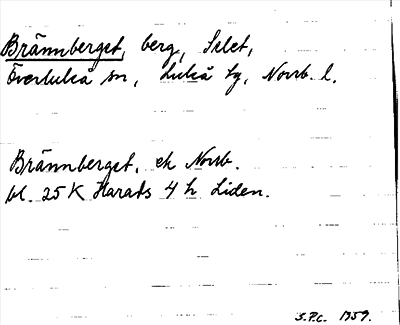 Brännberget, berg, Selet,
Överluleå sn, Luleå tg, Norrb. l.
Brännberget, ek Norrb.
bl. 25 K Harads 4 h Liden.
S.P.C. 1959.